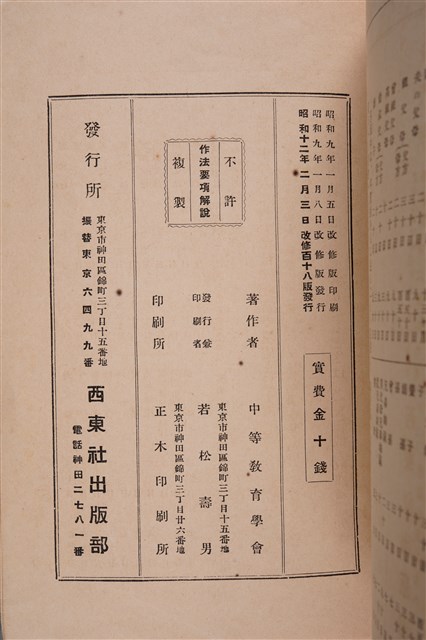 昭和九年一月五日改修版印刷
昭和九年一月八日改修版發行
昭和十二年二月三日改修百十八版發行
實費金十錢
不許
作法要項解説
複製
著作者 中等教育學會
東京市神田區錦町三丁目十五番地
發行兼
印刷者 若松壽男
東京市神田區錦町三丁目廿六番地
印刷所 正木印刷所
發行所
東京市神田區錦町三丁目十五番地
振替東京六四九九番
西東社出版部
電話神田二七八一番